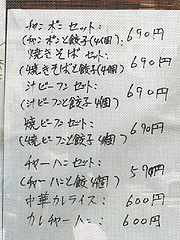 チャンポンセット:
(チャンポンと餃子(4個): 690円
焼きそばセット:
(焼きそばと餃子(4個) 690円
汁ビーフンセット:
(汁ビーフンと餃子 4個) 690円
焼ビーフンセット:
(焼ビーフンと餃子 4個) 690円
チャーハンセット:
(チャーハンと餃子 4個) 570円
中華カレライス: 600円
カレチャーハン: 600円